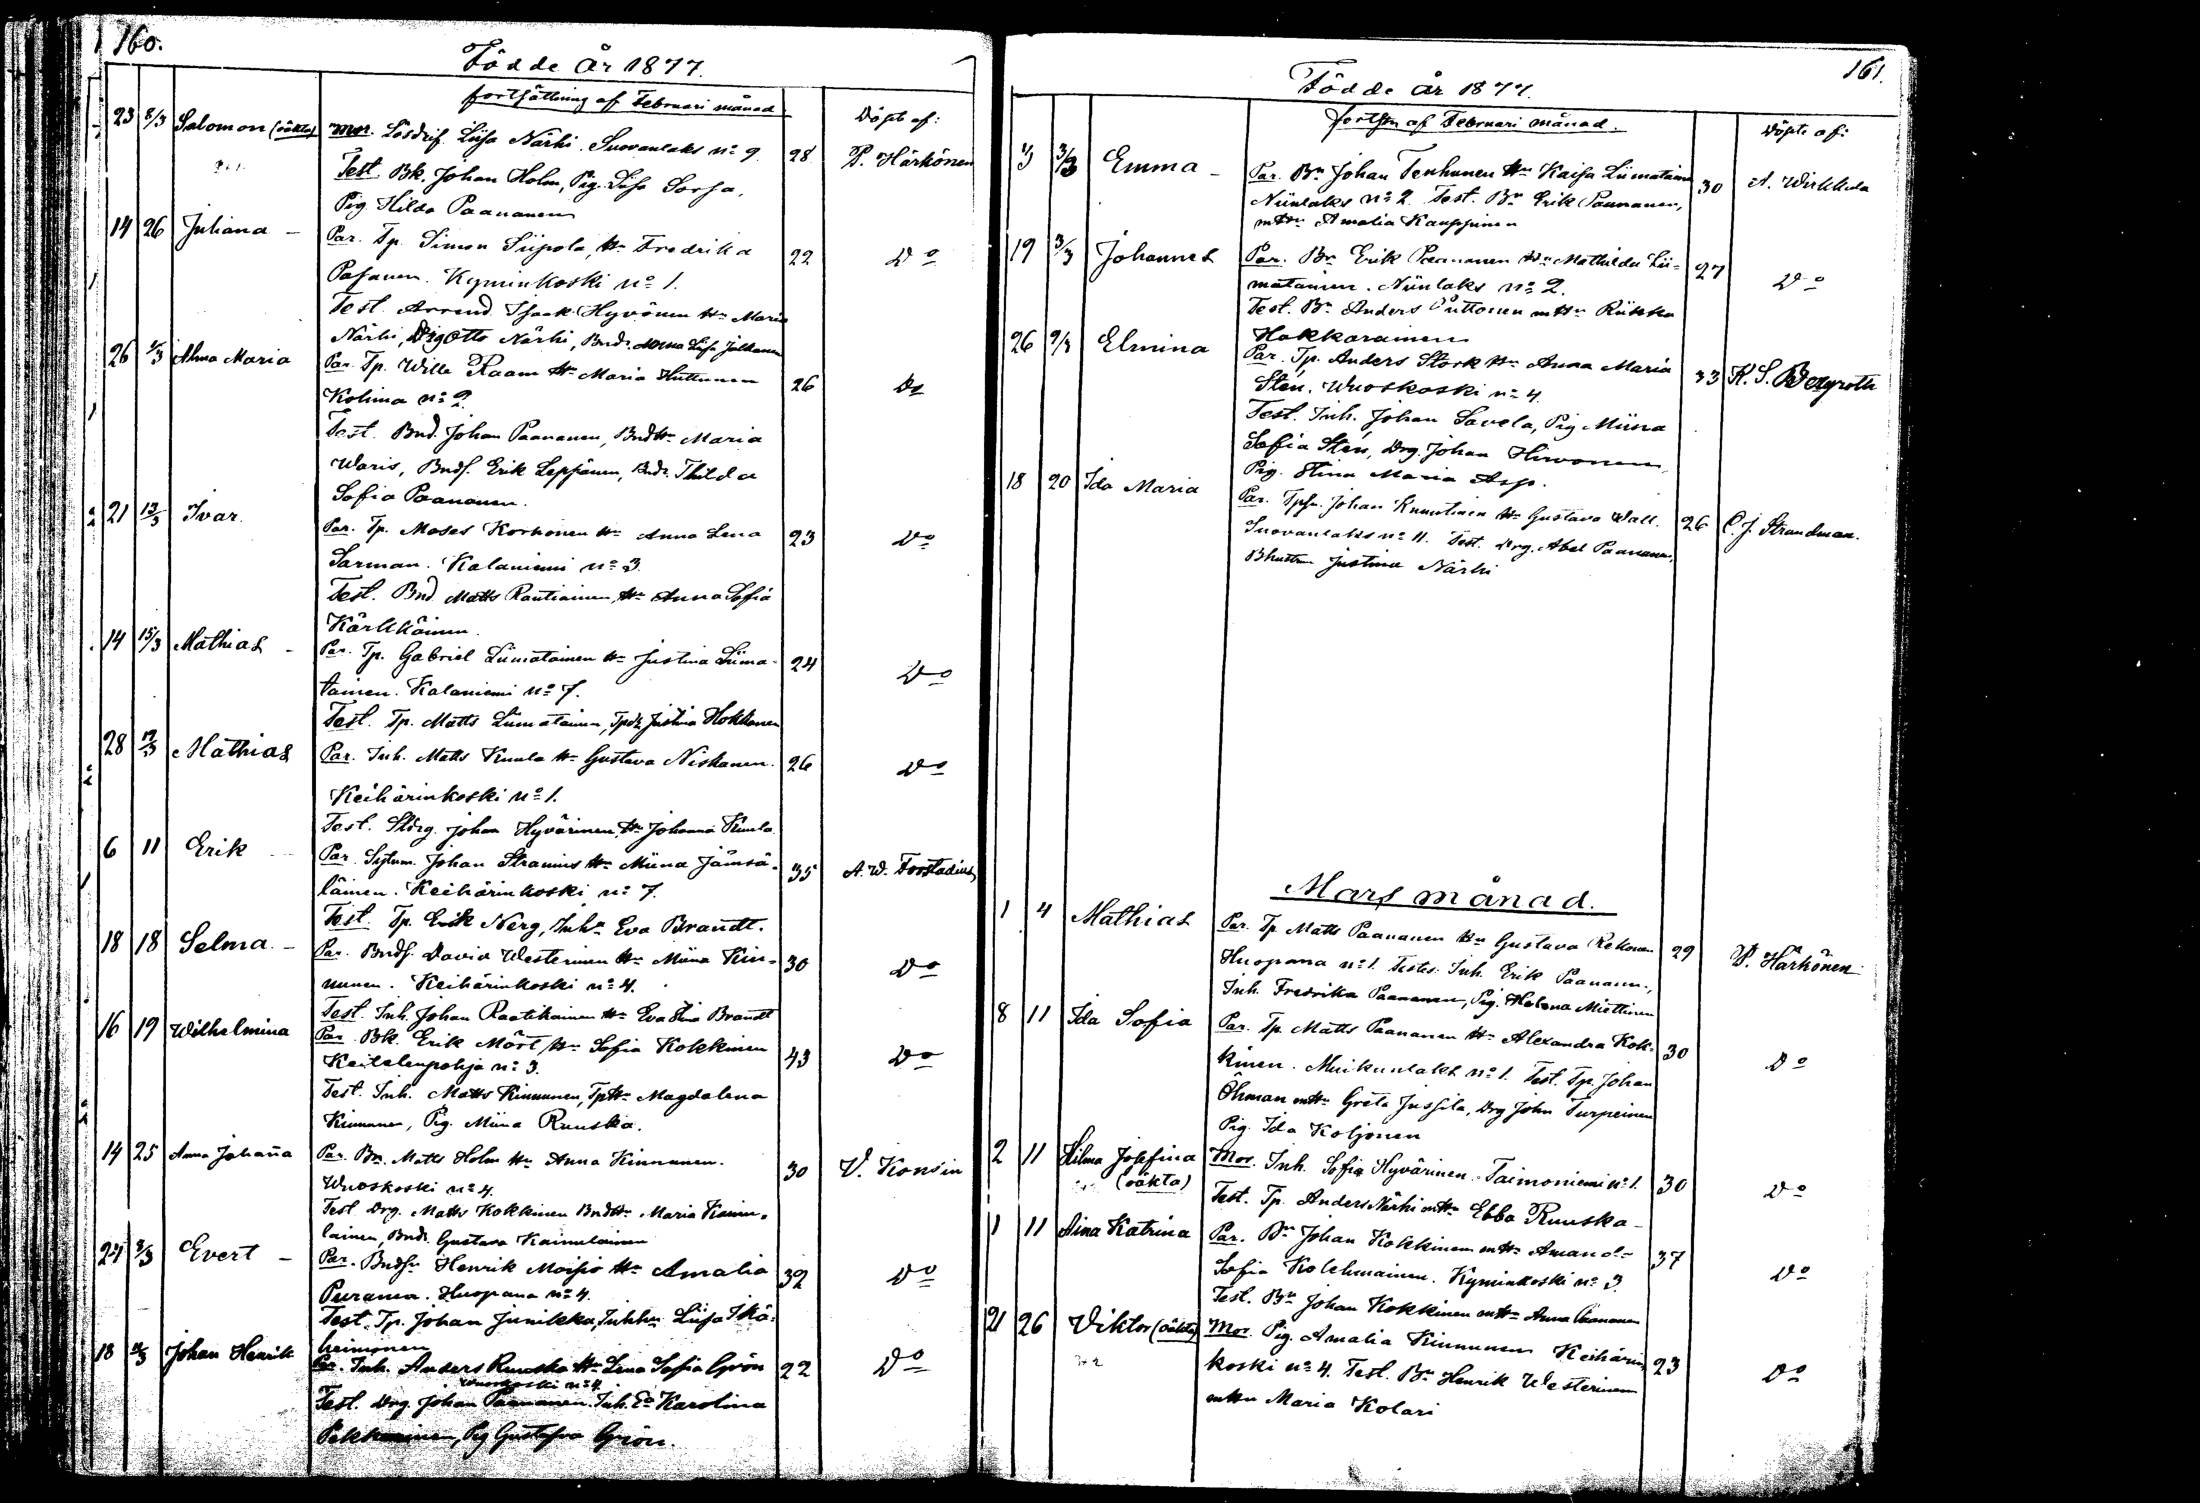 160.
Födde År 1877.
fortsättning af Februari månad
Döpte af:
23 8/3 Salomon (oäkta) Mor. Lösdrif. Liisa Närhi. Suovanlaks No 9. 28 P. Härkönen
Test. Bk. Johan Holm, Pig. Liisa Sorsa,
Pig. Hilda Paananen
14 26 Juliana – Par. Tp. Simon Siipola, Hu Fredrika 22 Do
Pasanen. Kyminkoski No 1.
Test. Arrend. Isaak Hyvönen Hu Maria
Närhi, Drg Otto Närhi, Bndr. Anna Liisa Jalkanen
26 Alma Maria Par. Tp. Wille Raam Hu Maria Huttunen 26 Do
Kolima No 2.
Test. Bnd. Johan Paananen, BndHu Maria
Waris, Bnds. Erik Leppänen, Bndr. Thilda
Sofia Paananen.
21 Ivar. Par. Tp. Moses Korhonen Hu Anna Lena 23 Do
Sarman. Kalaniemi No 3.
Test. Bnd Matts Rautiainen, Hu Anna Sofia
Kärkkäinen.
14 15/3 Mathias – Par. Tp. Gabriel Liimatainen Hu Justina Liima- 24 Do
tainen. Kalaniemi No 7.
Test. Tp. Matts Liimatainen, Justina Hokkanen
28 Mathias Par. Inh. Matts Kuula Hu Gustava Niskanen. 26 Do
Keihärinkoski No 1.
Test. Johan Hyvärinen, Hu Johanna Kuula
6 11 Erik Par. Sytnm. Johan Stranius Hu Miina Jämsä- 35 A. W. Forstadius
läinen. Keihärinkoski No 7.
Test. Tp. Erik Nerg, Eva Brandt.
18 18 Selma – Par. Bnds. David Westerinen Hu Miina Kin- 30 Do
nunen. Keihärinkoski No 4.
Test. Inh. Johan Raatikainen Hu Eva Brandt
16 19 Wilhelmina Par. Bk. Erik Mört Hu Sofia Kokkinen 43 Do
Keitelenpohja No 3.
Test. Inh. Matts Kinnunen, TpHu Magdalena
Kinnunen, Pig. Miina Ruuska.
14 25 Anna Johanna Par. Bn. Matts Holm Hu Anna Kinnunen. 30 V. Konsin
Wuoskoski No 4.
Test Drg. Matts Kokkinen BndHu Maria Kainu-
lainen, Bndr. Gustava Kainulainen
24 Evert – Par. Henrik Moisio Hu Amalia 32 Do
Puranen. Huopana No 4.
Test. Tp. Johan Junikka, Liisa Ikä-
heimonen
18 Johan Henrik Par. Inh. Anders Ruuska Hu Lena Sofia Grön 22 Do
Wuoskoski No 4
Test. Drg. Johan Paananen. Inh. Karolina
Pekkarinen, Pig Gustafva Grön.
161.
Födde År 1877.
forts. af Februari månad.
Döpte af:
3/3 Emma – Par. Bn Johan Tenhunen Hu Kaisa Liimatainen 30 A. Wirkkula
Niinlaks No 2. Test. Bn Erik Paananen,
mHu Amalia Kauppinen
19 3/3 Johannes Par. Bn Erik Paananen Hu Mathilda Lii- 27 Do
matainen. Niinlaks No 2.
Test. Bn Anders Puttonen mHu Riikka
Hakkarainen
26 Elmina Par. Tp. Anders Stark Hu Anna Maria 33 K. S. Bergroth
Stén. Wuoskoski No 4.
Test. Inh. Johan Savela, Pig Miina
Sofia Stén, Drg. Johan Hirvonen,
Pig. Stina Maria Asp.
18 20 Ida Maria Par. Johan Knuutinen Hu Gustava Wall. 26 C. J. Strandman.
Suovanlaks No 11. Test. Drg. Abel Paananen,
Justina Närhi
Mars månad.
1 4 Mathias Par. Tp Matts Paananen Hu Gustava Rekonen 29 P. Härkönen
Huopana No 1. Testes. Inh. Erik Paananen,
Inh. Fredrika Paananen, Pig. Helena Miettinen
8 11 Ida Sofia Par. Tp. Matts Paananen Hu Alexandra Kok- 30 Do
kinen. Muikunlaks No 1. Test. Tp. Johan
Öhman mHu Greta Jussila, Drg John Turpeinen
Pig. Ida Koljonen
2 11 Hilma Josefina (oäkta) Mor. Inh. Sofia Hyvärinen. Taimoniemi No 1. 30 Do
Test. Tp. Anders Närhi mHu Ebba Ruuska –
1 11 Aina Katrina Par. Bn Johan Kokkinen mHu Amanda 37 Do
Sofia Kolehmainen. Kyminkoski No 3.
Test. Bn Johan Kokkinen mHu Anna Paananen
21 26 Viktor (oäkta) Mor. Pig. Amalia Kinnunen Keihärin- 23 Do
koski No 4. Test. Bn Henrik Westerinen
mHu Maria Kolari